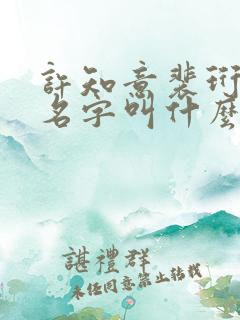 許知意裴珩
名字叫什麼
諶禮群
未经同意禁止转载